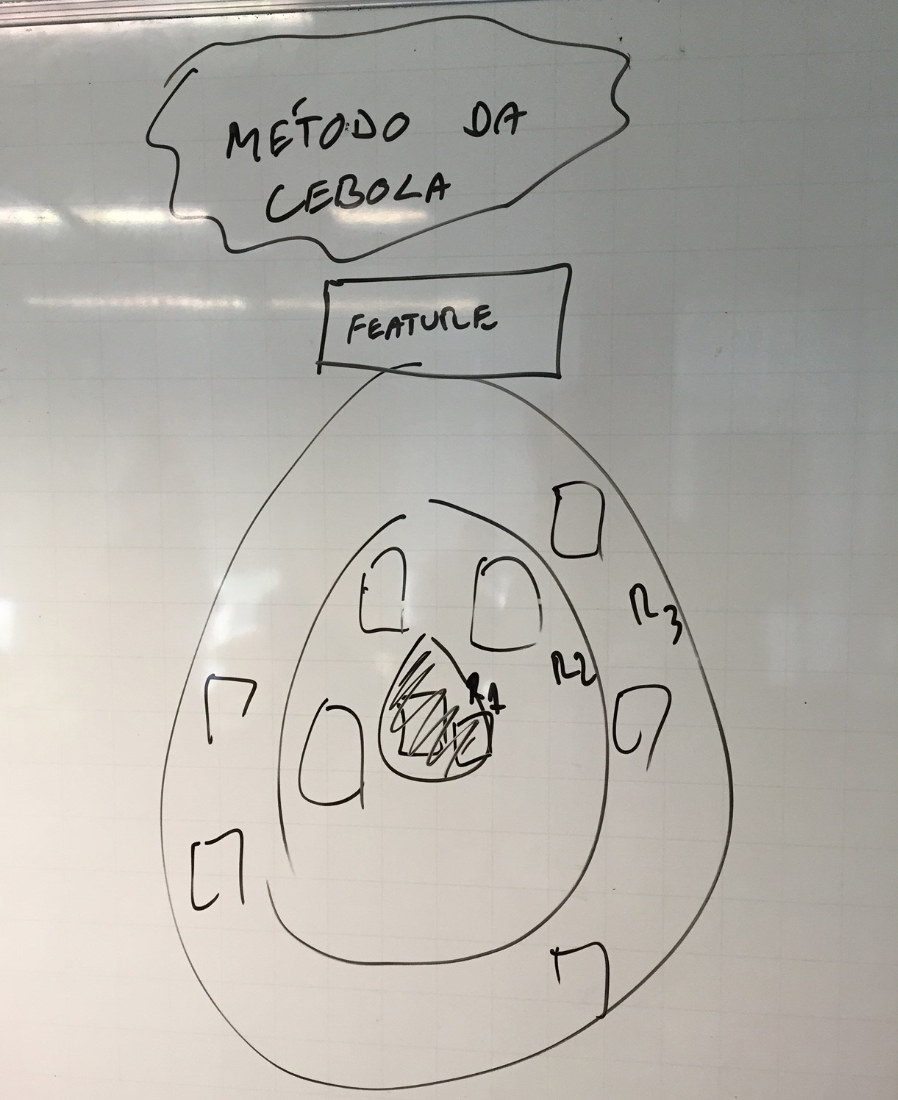 MÉTODO DA
CEBOLA
FEATURE
R3
R2
R1